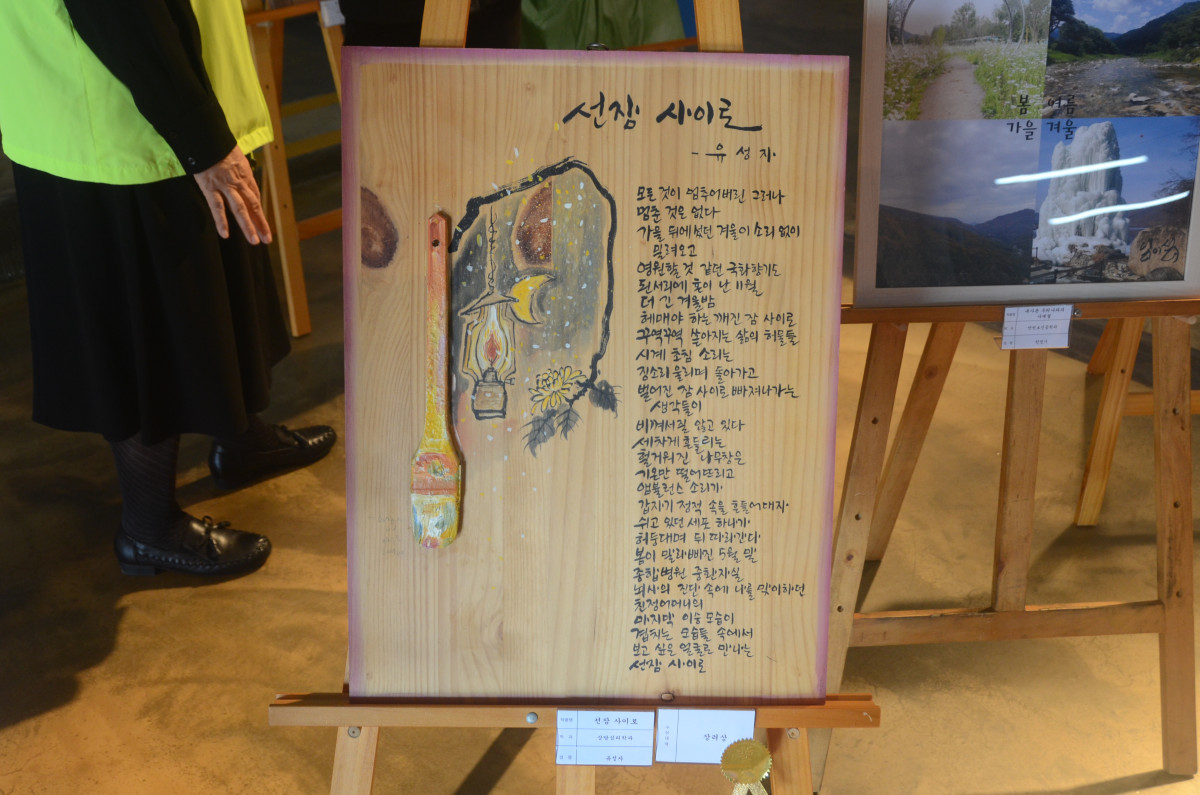 선잠 사이로
- 유성지
모든 것이 멈추어버린 그러나
멈춘 것은 없다
가을 뒤에 섰던 겨울이 소리 없이
밀려오고
영원할 것 같던 국화향기도
된서리에 혼이 난 11월
더 긴 겨울밤
헤매야 하는 깨진 잠 사이로
꾸역꾸역 쏟아지는 삶의 허물들
시계 초침 소리는
징소리 울리며 돌아가고
벌어진 잠 사이로 빠져나가는
생각들이
비껴서질 않고 있다
세차게 흔들리는
헐거워진 나무창은
기온만 떨어뜨리고
앰뷸런스 소리가
갑자기 정적 속을 흔들어대자
쉬고 있던 세포 하나가
허둥대며 뒤따라간다
봄이 말라빠진 5월 말
종합병원 중환자실
뇌사의 진단 속에 나를 맞이하던
친정어머니의
마지막 이승 모습이
겹치는 모습들 속에서
보고 싶은 얼굴로 만나는
선잠 사이로
선잠 사이로
유성지
장려상
봄 여름
가을 겨울